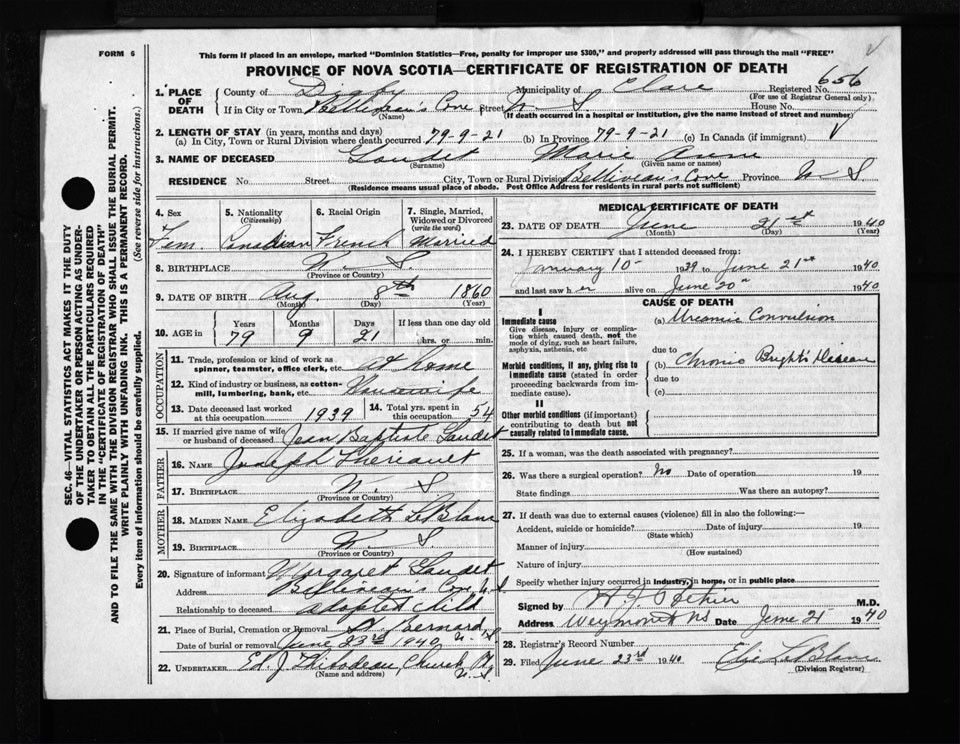 FORM 6
This form if placed in an envelope, marked "Dominion Statistics—Free, penalty for improper use $300," and properly addressed will pass through the mail "FREE"
PROVINCE OF NOVA SCOTIA—CERTIFICATE OF REGISTRATION OF DEATH
656
1. PLACE OF DEATH County of Digby Municipality of Clare Registered No.
(For use of Registrar General only)
If in City or Town Belliveau's Cove Street N S House No
(Name) (If death occurred in a hospital or institution, give the name instead of street and number)
2. LENGTH OF STAY (in years, months and days)
(a) In City, Town or Rural Division where death occurred 79-9-21 (b) In Province 79-9-21 (c) In Canada (if immigrant)
3. NAME OF DECEASED Gaudet Marie Ann
(Surname) (Given name or names)
RESIDENCE No Street City, Town or Rural Division Belliveau's Cove Province N S
(Residence means usual place of abode. Post Office Address for residents in rural parts not sufficient)
4. Sex 5. Nationality (Citizenship) 6. Racial Origin 7. Single, Married, Widowed or Divorced (write the word)
Fem. Canadian French Married
8. BIRTHPLACE N. S.
(Province or Country)
9. DATE OF BIRTH Aug. 8th 1860
(Month) (Day) (Year)
10. AGE in Years Months Days If less than one day old
79 9 21 hrs. or min.
OCCUPATION
11. Trade, profession or kind of work as spinner, teamster, office clerk, etc. at Home
12. Kind of industry or business, as cotton-mill, lumbering, bank, etc. Housewife
13. Date deceased last worked at this occupation 1939 14. Total yrs. spent in this occupation 54
15. If married give name of wife or husband of deceased Jean Baptiste Gaudet
FATHER
16. NAME Joseph Theriault
17. BIRTHPLACE N. S
(Province or Country)
MOTHER
18. MAIDEN NAME Elizabeth LeBlanc
19. BIRTHPLACE N. S.
(Province or Country)
20. Signature of informant Margaret Gaudet
Address Belliveau's Cove, N.S
Relationship to deceased adopted child
21. Place of Burial, Cremation or Removal St Bernard N. S
Date of burial or removal June 23rd 1940
22. UNDERTAKER Ed. J Thibodeau, Church Pt N. S
(Name and address)
MEDICAL CERTIFICATE OF DEATH
23. DATE OF DEATH June 21st 1940
(Month) (Day) (Year)
24. I HEREBY CERTIFY that I attended deceased from:
January 10- 1939 to June 21st 1940
and last saw her alive on June 20th 1940
CAUSE OF DEATH
I
Immediate cause (a) Uremic Convulsion
Give disease, injury or complication which caused death, not the mode of dying, such as heart failure, asphyxia, asthenia, etc
due to
Morbid conditions, if any, giving rise to immediate cause (stated in order proceeding backwards from immediate cause). (b) Chronic Bright's Disease
due to
(c)
II
Other morbid conditions (if important) contributing to death but not causally related to immediate cause.
25. If a woman, was the death associated with pregnancy?
26. Was there a surgical operation? no Date of operation 19
State findings Was there an autopsy?
27. If death was due to external causes (violence) fill in also the following:—
Accident, suicide or homicide? Date of injury 19
(State which)
Manner of injury
(How sustained)
Nature of injury
Specify whether injury occurred in industry, in home, or in public place
Signed by M.D.
Address Weymouth NS Date June 21- 1940
28. Registrar's Record Number
29. Filed June 23rd 1940 LeBlanc
(Division Registrar)
SEC. 46—VITAL STATISTICS ACT MAKES IT THE DUTY
OF THE UNDERTAKER OR PERSON ACTING AS UNDER-
TAKER TO OBTAIN ALL THE PARTICULARS REQUIRED
IN THE "CERTIFICATE OF REGISTRATION OF DEATH"
AND TO FILE THE SAME WITH THE DIVISION REGISTRAR WHO SHALL ISSUE THE BURIAL PERMIT.
WRITE PLAINLY WITH UNFADING INK. THIS IS A PERMANENT RECORD.
Every item of information should be carefully supplied. (See reverse side for instructions.)